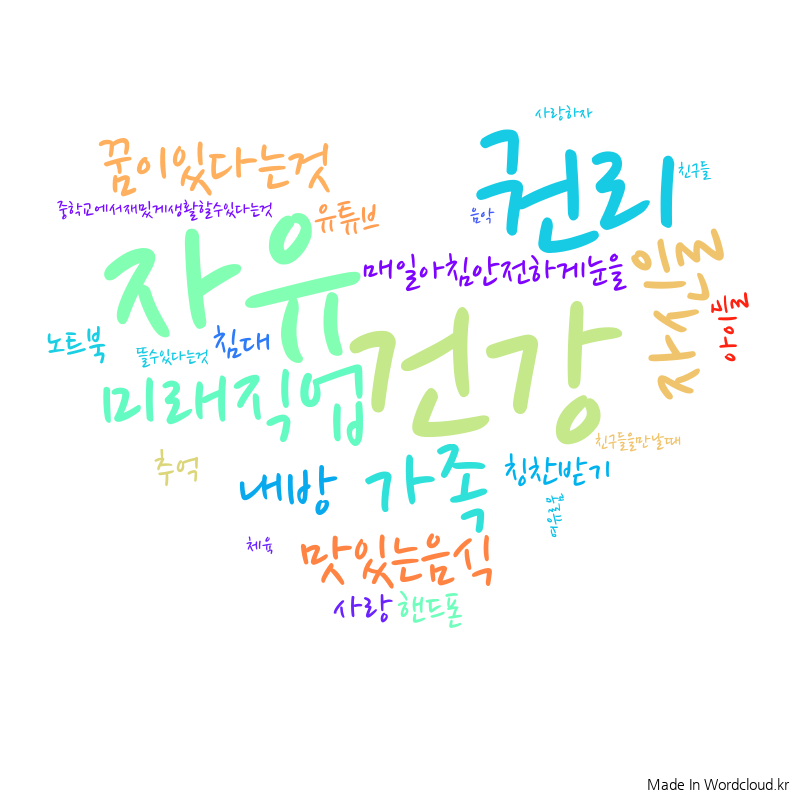 사랑하자
꿈이있다는것
권리
친구들
중학교에서재밌게생활할수있다는것
유튜브
음악
자유
매일아침안전하게눈을
자신들
아이들
노트북
뜰수있다는것
침대
건강
미래직업
추억
내방
가족
칭찬받기
친구들을만날때
체육
맛있는음식
사랑
핸드폰
Made In Wordcloud.kr